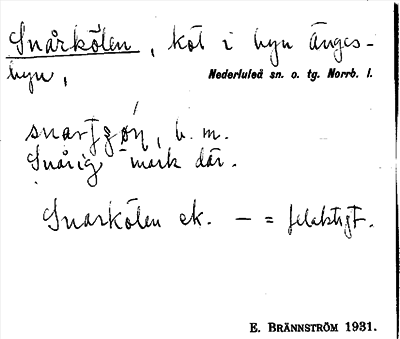 Snårkölen, köl i byn Änges-
byn,
Nederluleå sn. o. tg. Norrb. l.
b. m.
Snårig mark där.
Snarkölen ek. — = felaktigt.
E. BRÄNNSTRÖM 1931.